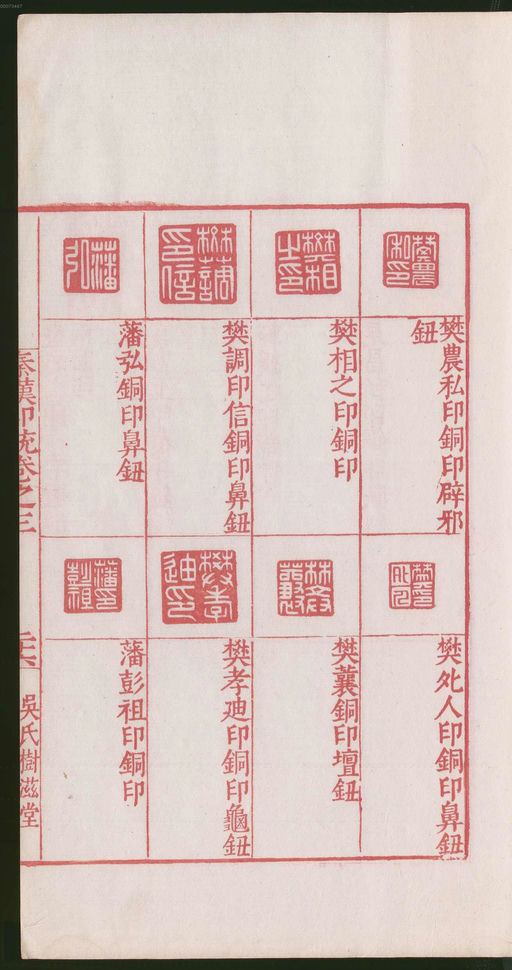 樊農私印銅印辟邪
鈕
樊相之印銅印
樊調印信銅印鼻鈕
藩弘銅印鼻鈕
樊處人印銅印鼻鈕
樊蘘銅印壇鈕
樊孝廸印銅印龜鈕
藩彭祖印銅印
秦漢印統卷之三
吳氏樹滋堂
00073447